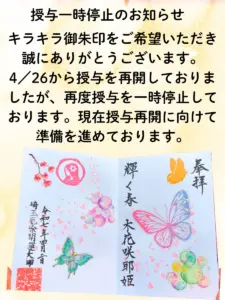 授与一時停止のお知らせ
キラキラ御朱印をご希望いただき
誠にありがとうございます。
4／26から授与を再開しておりま
したが、再度授与を一時停止して
おります。現在授与再開に向けて
準備を進めております。
奉拝
輝く春 木花咲耶姫
令和七年四月一日